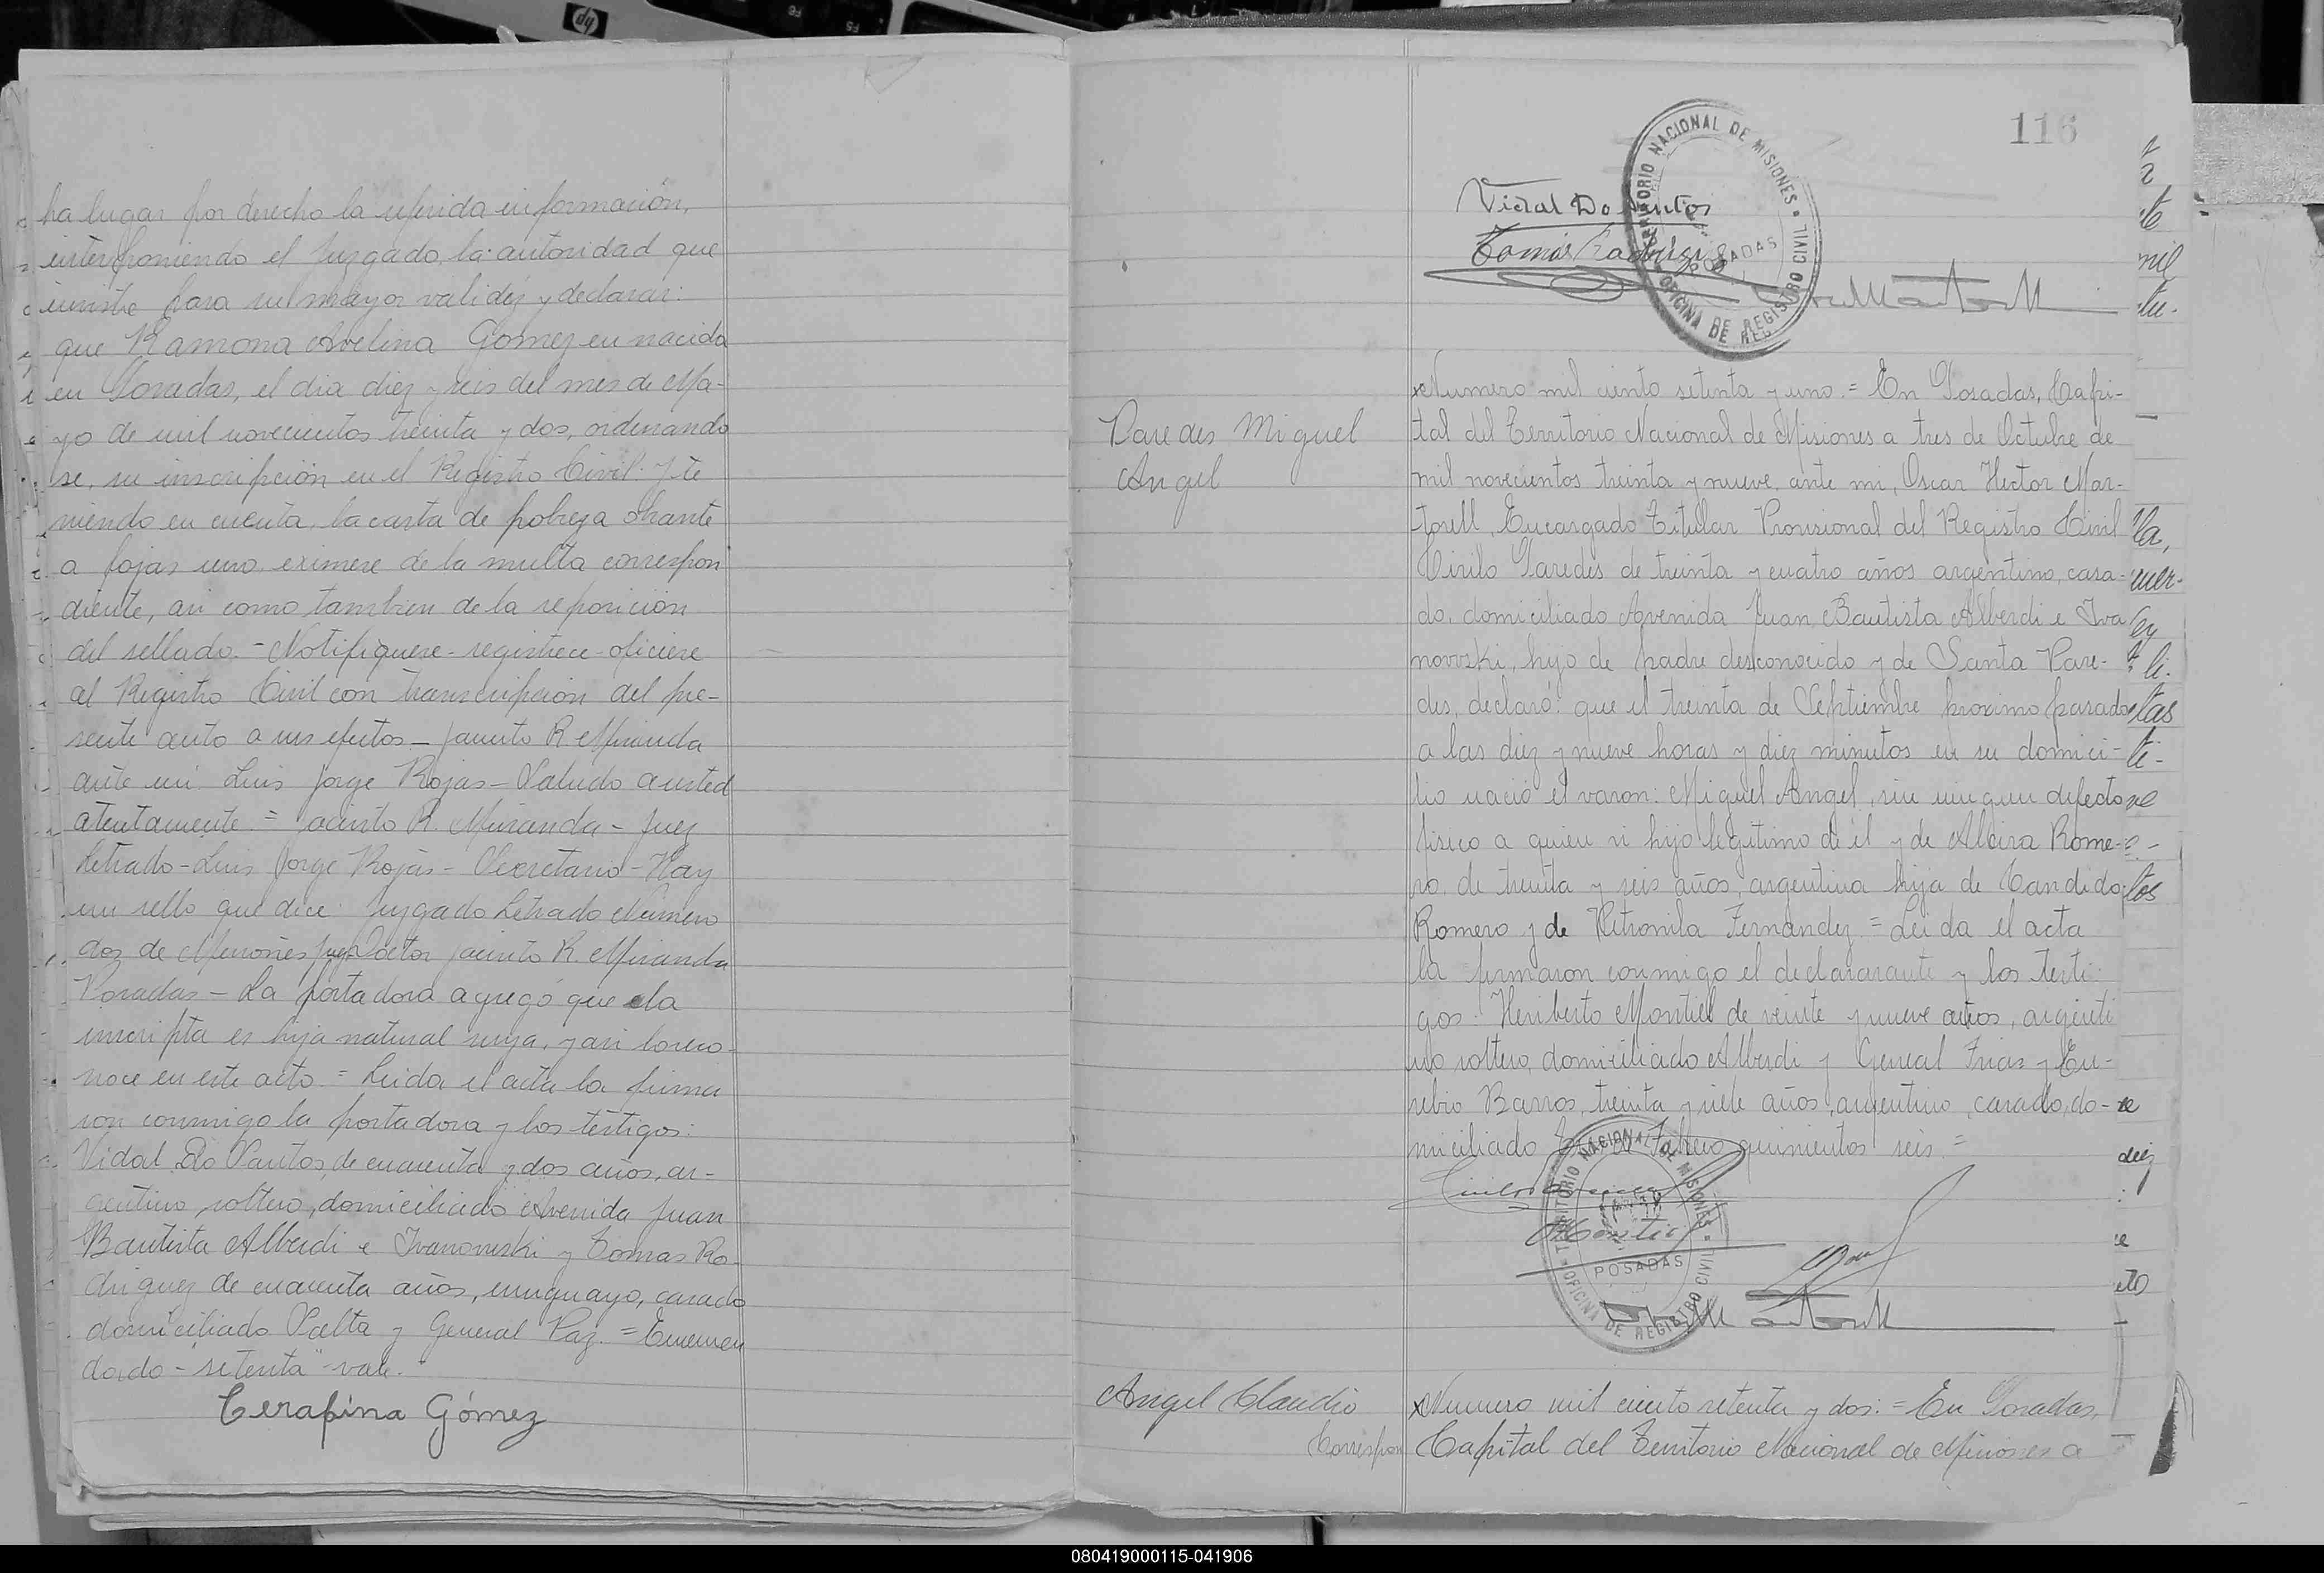 ha lugar por derecho la referida información,
interponiendo el Juzgado la autoridad que
inviste para su mayor validéz y declarar:
que Ramona Avelina Gomez en nacida
en Posadas, el dia diez y seis del mes de Ma-
yo de mil novecientos treinta y dos, ordenando
se, su inscripción en el Registro Civil. y te
niendo en cuenta, la carta de pobreza obrante
a fojas uno, eximese de la multa correspon
diente, asi como tambien de la reposición
del sellado.- Notifiquese- registrece- oficiese
al Registro Civil con transcripción del pre-
sente auto a sus efectos - Jacinto R. Miranda
ante mi Luis Jorge Rojas - Saludo a usted
atentamente = Jacinto R. Miranda - Juez
Letrado - Luis Jorge Rojas - Secretario - Hay
un sello que dice: Juzgado Letrado Número
dos de Misiones Juez Doctor Jacinto R. Miranda
Posadas - La portadora agregó que la
inscripta es hija natural suya, y asi lo reco-
noce en este acto. = Leida el acta la firma
ron conmigo la portadora y los testigos:
Vidal Do Santos, de cuarenta y dos años, ar-
gentino soltero, domiciliado Avenida Juan
Bautista Alberdi e Ivanowski y Tomas Ro-
driguez de cuarenta años, uruguayo, casado
domiciliado Salta y General Paz. = Enmen
dado - "setenta" vale.
Cerafina Gómez
116
Vidal Do Santos
Tomás Rodriguez
TERRITORIO NACIONAL DE MISIONES
POSADAS
OFICINA DE REGISTRO CIVIL
Paredes Miguel
Angel
xNumero mil ciento setenta y uno. = En Posadas, Capi-
tal del Territorio Nacional de Misiones a tres de Octubre de
mil novecientos treinta y nueve, ante mi, Oscar Hector Mar-
torell, Encargado Titular Provisional del Registro Civil
Cirilo Paredes de treinta y cuatro años argentino, casa-
do, domiciliado Avenida Juan Bautista Alberdi e Iva
novski, hijo de padre desconocido y de Santa Pare-
des, declaró: que el treinta de Septiembre proximo pasado
a las diez y nueve horas y diez minutos en su domici-
lio nació el varon: Miguel Angel, sin ningun defecto
fisico a quien vi hijo legitimo de él y de Alcira Rome-
ro, de treinta y seis años, argentina hija de Candido
Romero y de Petronila Fernandez. = Leida el acta
la firmaron conmigo el declararante y los testi
gos: Heriberto Montiel de veinte y nueve años, argenti
no soltero, domiciliado Alberdi y General Frias y Eu-
sebio Barros, treinta y siete años, argentino, casado, do-
miciliado quinientos seis. =
TERRITORIO NACIONAL DE MISIONES
POSADAS
OFICINA DE REGISTRO CIVIL
Angel Claudio
Correspon
xNumero mil ciento setenta y dos: = En Posadas,
Capital del Territorio Nacional de Misiones a
080419000115-041906